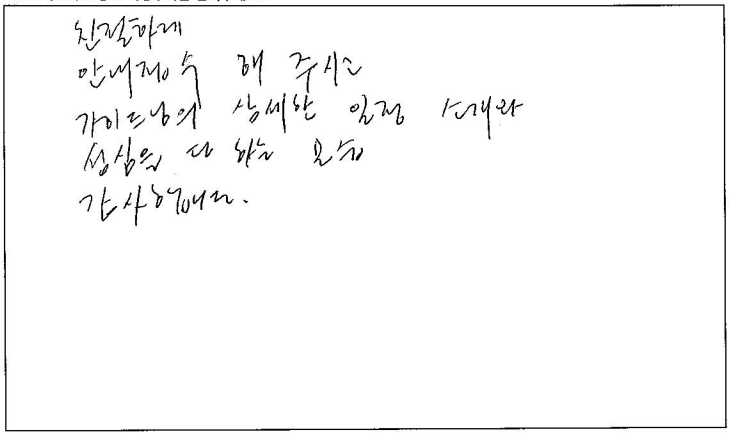 친절하게
안내접수 해 주시고
가이드님의 상세한 일정 소개와
성심을 다 하는 모습
감사했습니다.